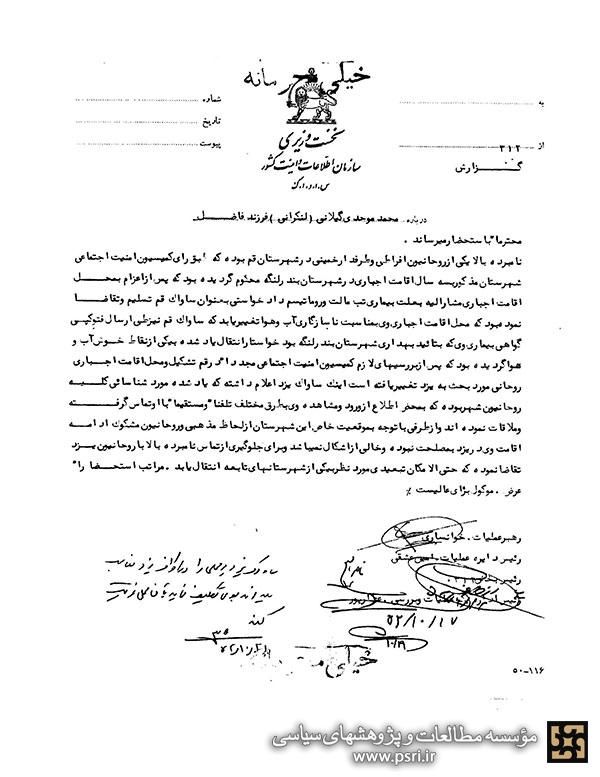 خیلی محرمانه
به
شماره
تاریخ
نخست وزیری
از ۳۱۲
پیوست
سازمان اطلاعات و امنیت کشور
گزارش
س.ا.و.ا.ک
درباره محمد موحدی گیلانی (لنکرانی) فرزند فاضل
محترما" باستحضار میرساند .
نامبرده بالا یکی از روحانیون افراطی و طرفدار خمینی در شهرستان قم بوده که طبق رای کمیسیون امنیت اجتماعی
شهرستان مذکور بسه سال اقامت اجباری در شهرستان بندر لنگه محکوم گردیده بود که پس از اعزام بمحل
اقامت اجباری مشارالیه بعلت بیماری تب مالت و روماتیسم دادخواستی بعنوان ساواک قم تسلیم و تقاضا
نموده بود که محل اقامت اجباری وی بمناسبت ناسازگاری آب و هوا تغییر یابد که ساواک قم نیز طی ارسال فتوکپی
گواهی بیماری وی که بتائید بهداری شهرستان بندر لنگه بود خواستار انتقال یاد شده بیکی از نقاط خوش آب و
هوا گردیده بود که پس از بررسیهای لازم کمیسیون امنیت اجتماعی مجددا" در قم تشکیل و محل اقامت اجباری
روحانی مورد بحث به یزد تغییر یافته است اینک ساواک یزد اعلام داشته که یاد شده مورد شناسائی کلیه
روحانیون شهر بوده که بمحض اطلاع از ورود و مشاهده وی بطرق مختلف تلفنا" و مستقیما" با او تماس گرفته
و ملاقات نموده اند و از طرفی با توجه بموقعیت خاص این شهرستان از لحاظ مذهبی و روحانیون مشکوک ادامه
اقامت وی در یزد بمصلحت نبوده و خالی از اشکال نمیباشد و برای جلوگیری از تماس نامبرده بالا با روحانیون یزد
تقاضا نموده که حتی الامکان تبعیدی مورد نظر بیکی از شهرستانهای تابعه انتقال یابد . مراتب استحضارا"
عرض . موکول برای عالیست
رهبر عملیات . خوانساری
رئیس دایره عملیات
رئیس بخش ۳۱۲
۵۲/۱۰/۱۷
۱۰/۱۹
۳۵
خیلی
۵۰-۱۱۶
مؤسسه مطالعات و پژوهشهای سیاسی
www.psri.ir